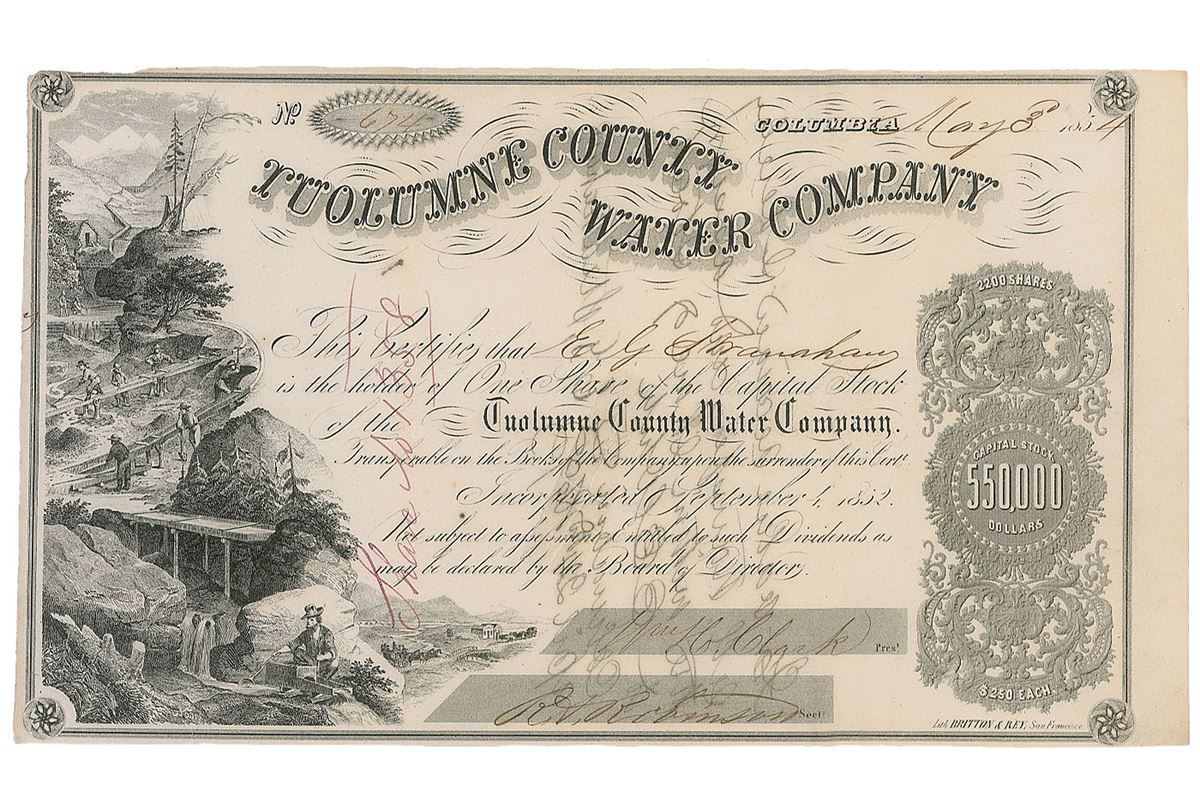 No. 674
COLUMBIA May 3d 1854
TUOLUMNE COUNTY
WATER COMPANY
2200 SHARES
This Certifies that E. G. Stranahan
is the holder of One Share of the Capital Stock
of the Tuolumne County Water Company.
Transferable on the Books of the Company upon the surrender of this Cert.
CAPITAL STOCK
550,000
DOLLARS
Incorporated September 4, 1852.
Not subject to assessment Entitled to such Dividends as
may be declared by the Board of Directors.
Share No 1358
Wm. C. Clark Prest
R. A. Robinson Sect
$250 EACH.
Lith. BRITTON & REY, San Francisco.